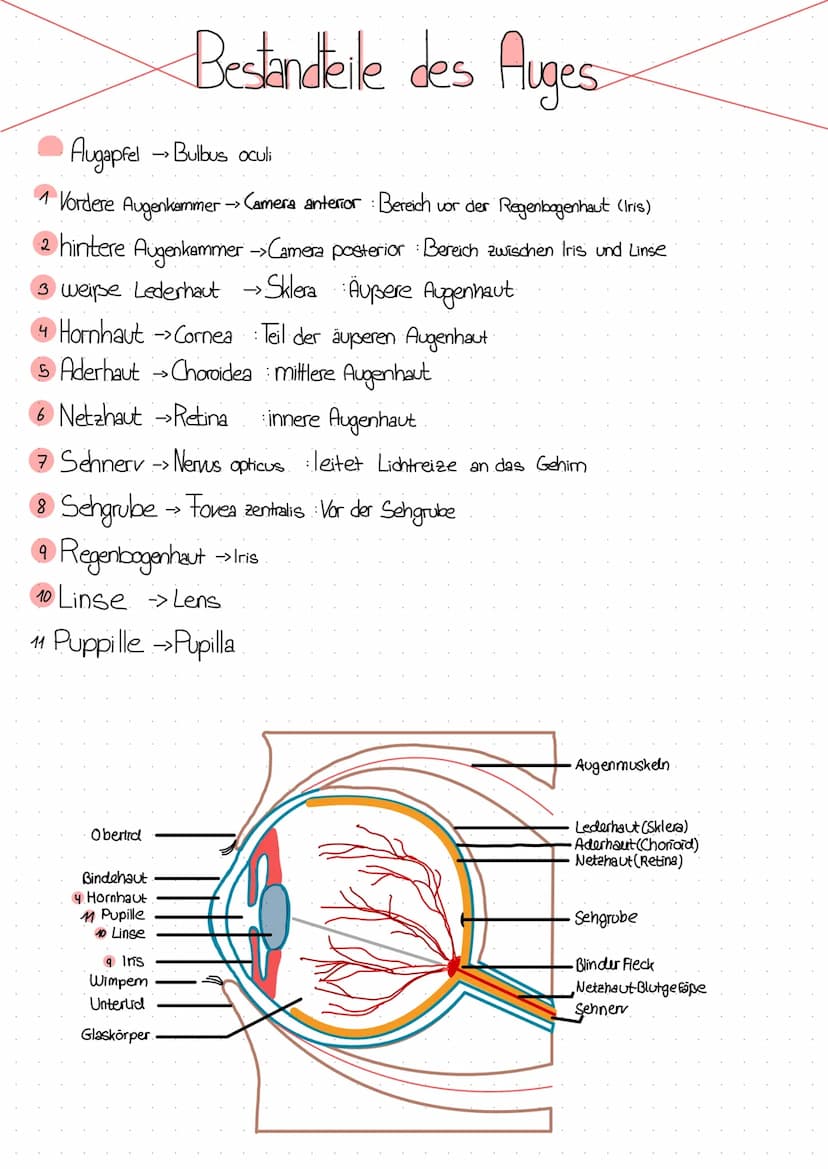 Bestandteile des Auges
Augapfel → Bulbus oculi
1 Vordere Augenkammer → Camera anterior : Bereich vor der Regenbogenhaut (Iris)
2 hintere Augenkammer → Camera posterior : Bereich zwischen Iris und Linse
3 weiße Lederhaut → Sklera : Äußere Augenhaut
4 Hornhaut → Cornea : Teil der äußeren Augenhaut
5 Aderhaut → Choroidea : mittlere Augenhaut
6 Netzhaut → Retina : innere Augenhaut
7 Sehnerv → Nervus opticus : leitet Lichtreize an das Gehirn
8 Sehgrube → Fovea zentralis : Vor der Sehgrube
9 Regenbogenhaut → Iris
10 Linse → Lens
11 Puppille → Pupilla
Augenmuskeln
Oberlid
Lederhaut (Sklera)
Aderhaut (Chorioid)
Netzhaut (Retina)
Bindehaut
4 Hornhaut
11 Pupille
10 Linse
Sehgrube
9 Iris
Blinder Fleck
Wimpern
Netzhaut-Blutgefäße
Unterlid
Sehnerv
Glaskörper